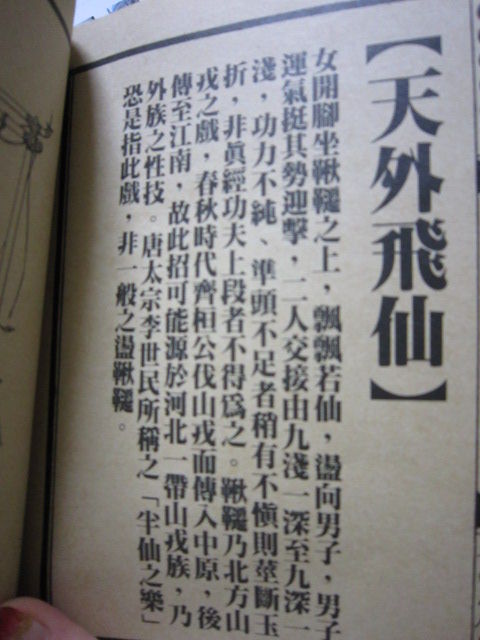 【天外飛仙】
女開腳坐鞦韆之上，飄飄若仙，盪向男子，男子
運氣挺其勢迎擊，二人交接由九淺一深至九深一
淺，功力不純、準頭不足者稍有不慎則莖斷玉
折，非眞經功夫上段者不得爲之。鞦韆乃北方山
戎之戲，春秋時代齊桓公伐山戎而傳入中原，後
傳至江南，故此招可能源於河北一帶山戎族，乃
外族之性技。唐太宗李世民所稱之「半仙之樂」
恐是指此戲，非一般之盪鞦韆。